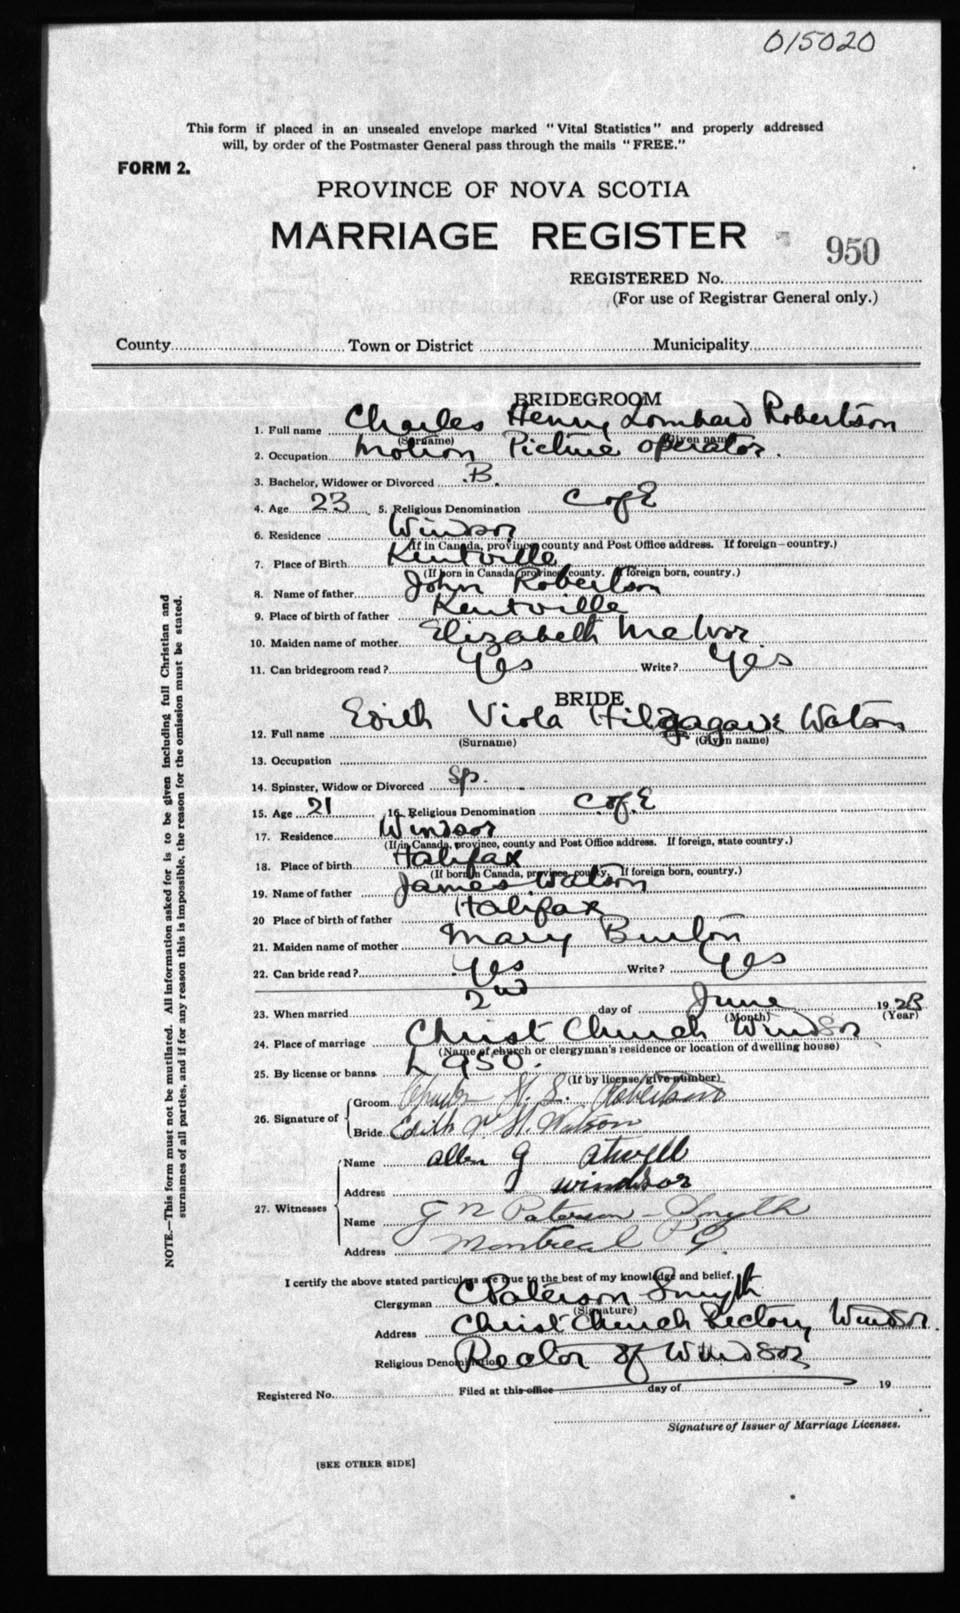 015020
This form if placed in an unsealed envelope marked "Vital Statistics" and properly addressed
will, by order of the Postmaster General pass through the mails "FREE."
FORM 2.
PROVINCE OF NOVA SCOTIA
MARRIAGE REGISTER
950
REGISTERED No.
(For use of Registrar General only.)
County Town or District Municipality
BRIDEGROOM
1. Full name Charles Henry Lombard Robertson
(Surname) (Given name)
2. Occupation Motion Picture operator.
3. Bachelor, Widower or Divorced B.
4. Age 23 5. Religious Denomination C of E
6. Residence Windsor
(If in Canada, province, county and Post Office address. If foreign—country.)
7. Place of Birth Kentville
(If born in Canada, province, county. If foreign born, country.)
8. Name of father John Robertson
9. Place of birth of father Kentville
10. Maiden name of mother Elizabeth McIvor
11. Can bridegroom read? Yes Write? Yes
BRIDE
12. Full name Edith Viola Watson
(Surname) (Given name)
13. Occupation
14. Spinster, Widow or Divorced Sp.
15. Age 21 16. Religious Denomination C of E
17. Residence Windsor
(If in Canada, province, county and Post Office address. If foreign, state country.)
18. Place of birth Halifax
(If born in Canada, province, county. If foreign born, country.)
19. Name of father James Watson
20 Place of birth of father Halifax
21. Maiden name of mother Mary Burton
22. Can bride read? Yes Write? Yes
23. When married 2nd day of June 1923
(Month) (Year)
24. Place of marriage Christ Church Windsor
(Name of church or clergyman's residence or location of dwelling house)
25. By license or banns L 950.
(If by license, give number)
26. Signature of Groom Charles H. L. Robertson
Bride Edith V. H. Watson
27. Witnesses
Name Allen G Atwell
Address Windsor
Name G N Paterson-Smyth
Address Montreal P Q.
I certify the above stated particulars are true to the best of my knowledge and belief.
Clergyman C Paterson Smyth
(Signature)
Address Christ Church Rectory Windsor.
Religious Denomination Rector of Windsor
Registered No. Filed at this office day of 19
Signature of Issuer of Marriage Licenses.
[SEE OTHER SIDE]
NOTE.—This form must not be mutilated. All information asked for is to be given including full Christian and
surnames of all parties, and if for any reason this is impossible, the reason for the omission must be stated.